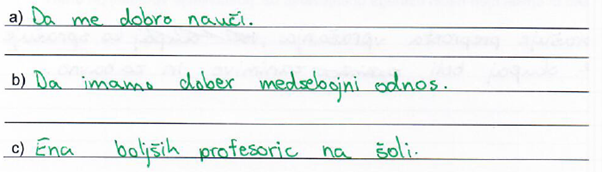 a) Da me dobro nauči.
b) Da imamo dober medsebojni odnos.
c) Ena boljših profesoric na šoli.